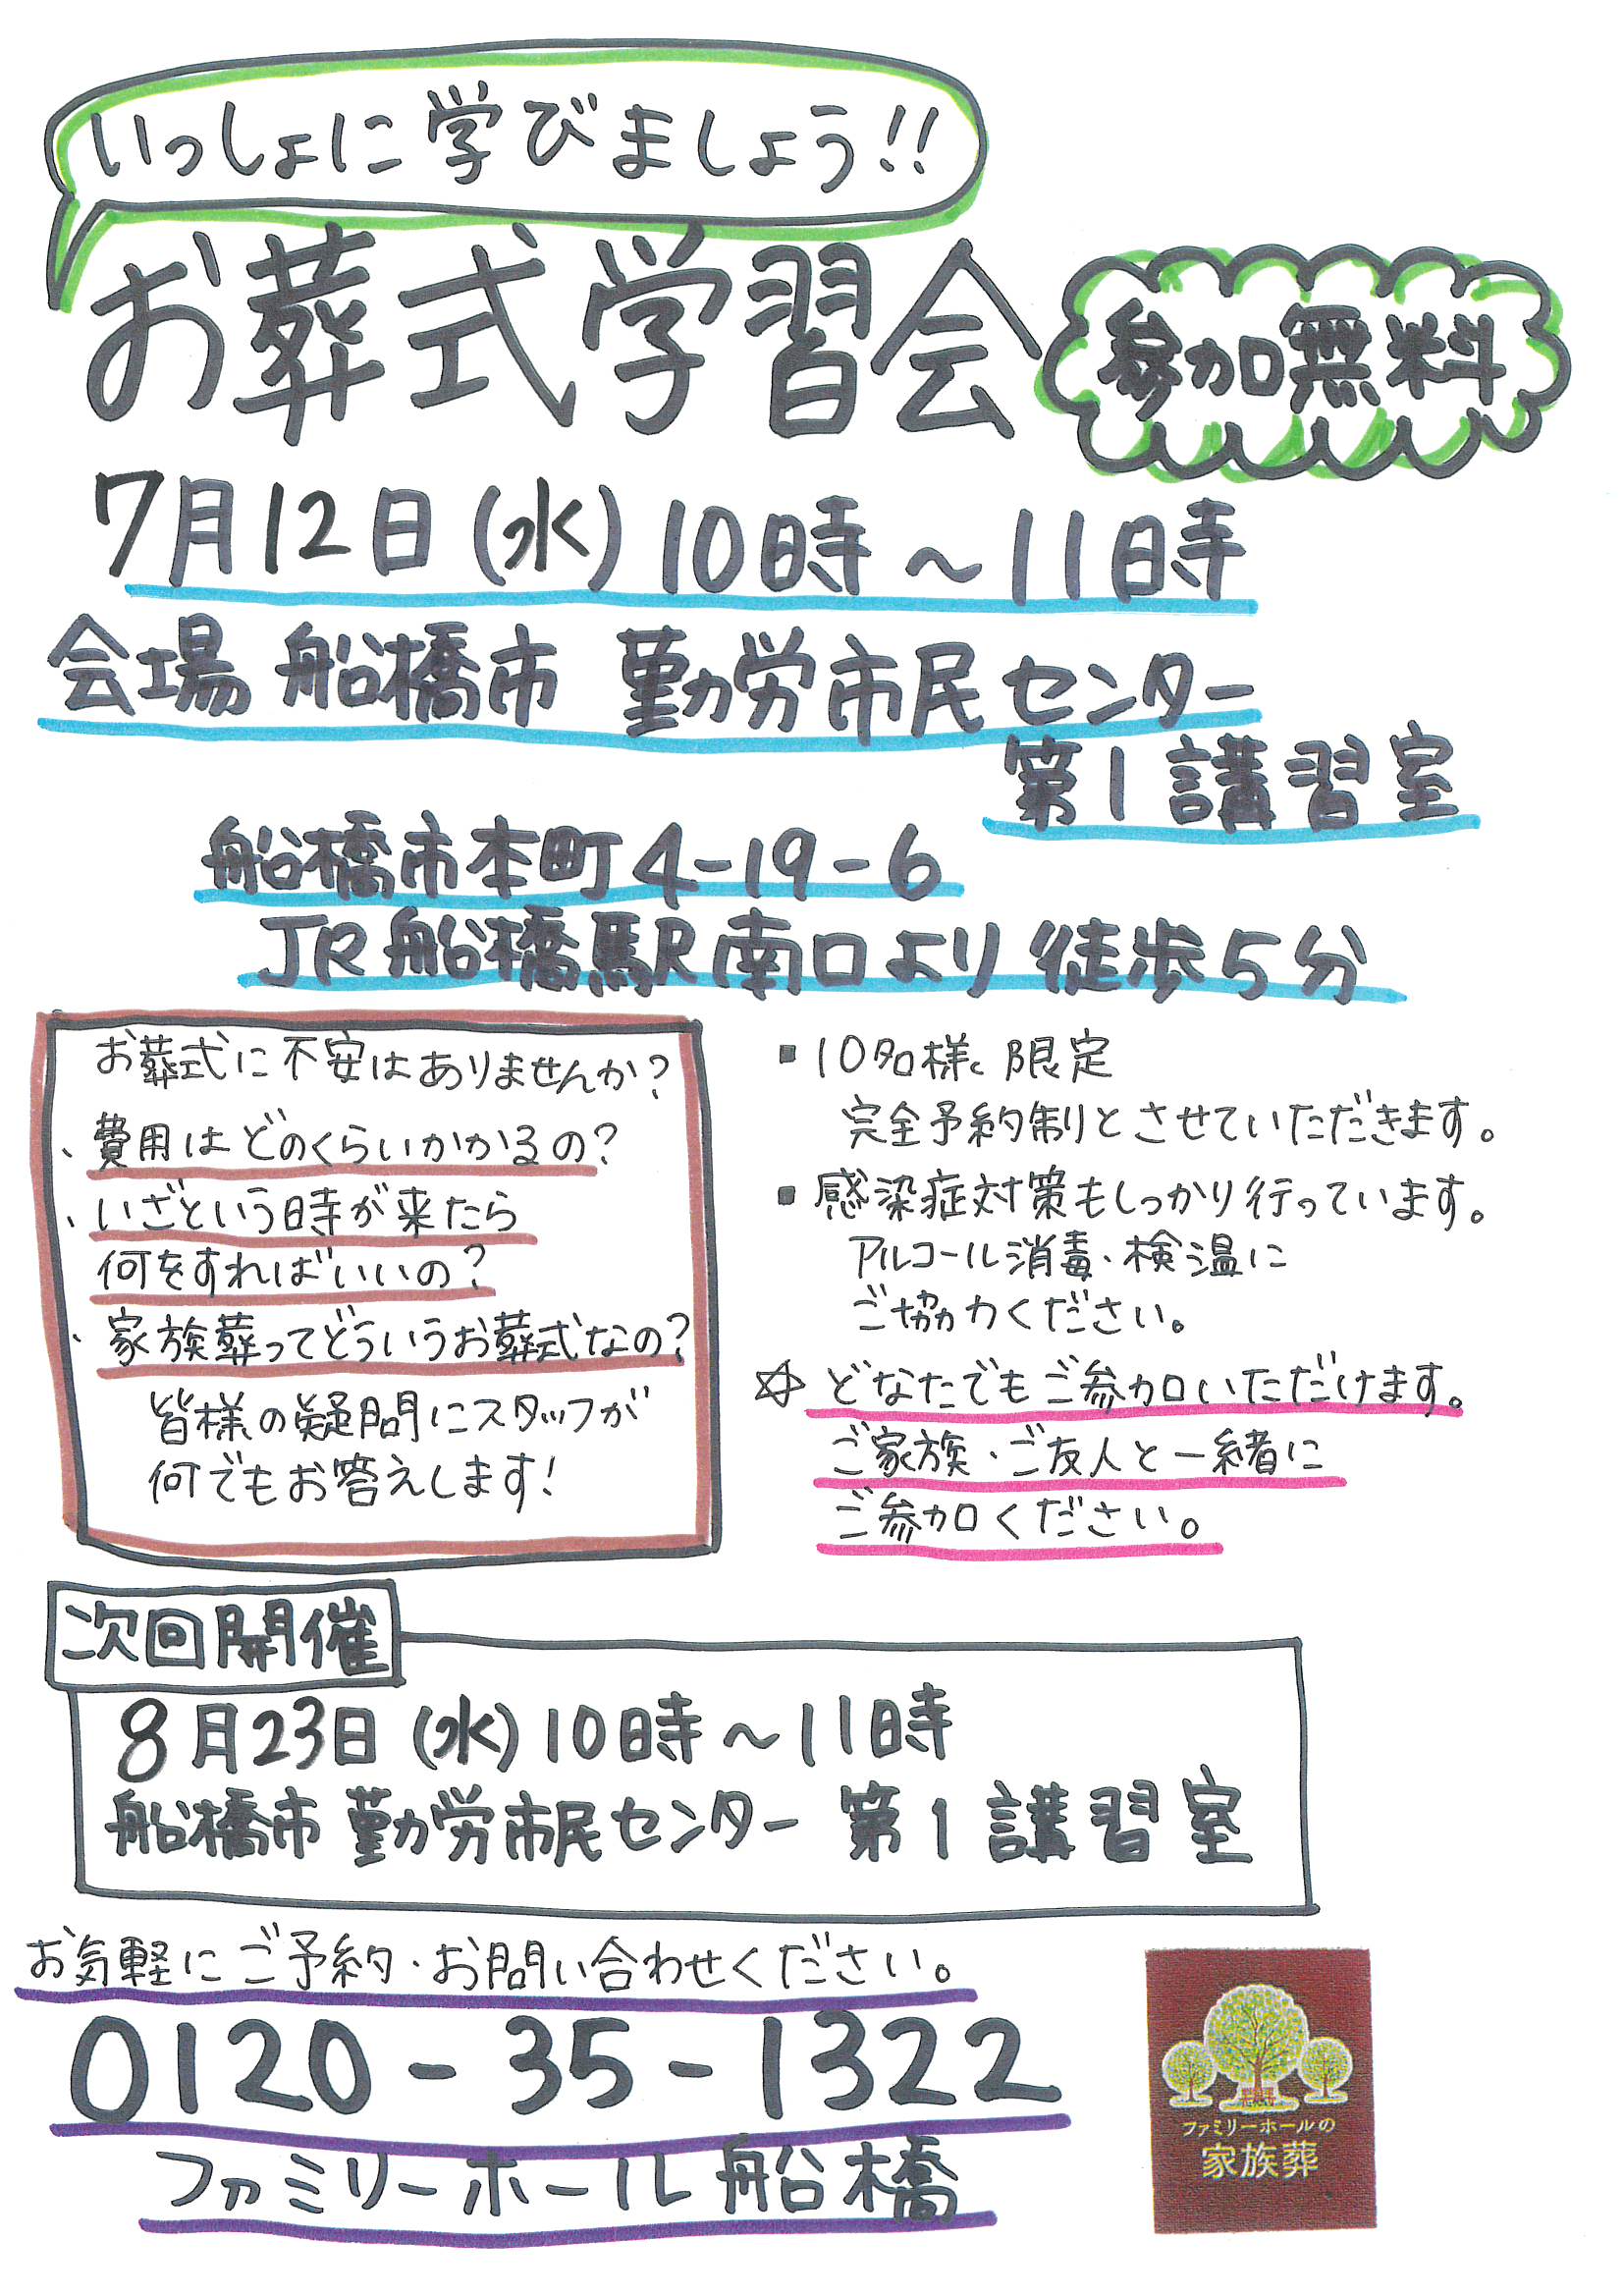 いっしょに学びましょう!!
お葬式学習会
参加無料
7月12日(水)10時～11時
会場 船橋市 勤労市民センター
第1講習室
船橋市本町4-19-6
JR船橋駅南口より徒歩5分
お葬式に不安はありませんか?
、費用はどのくらいかかるの?
、いざという時が来たら
何をすればいいの?
、家族葬ってどういうお葬式なの?
皆様の疑問にスタッフが
何でもお答えします!
▪10名様限定
完全予約制りとさせていただきます。
▪感染症対策もしっかり行っています。
アルコール消毒・検温に
ご協力ください。
☆どなたでもご参加いただけます。
ご家族・ご友人と一緒に
ご参加ください。
次回開催
8月23日(水)10時～11時
船橋市 勤労市民センター 第1講習室
お気軽にご予約・お問い合わせください。
0120-35-1322
ファミリーホール船橋
ファミリーホールの
家族葬